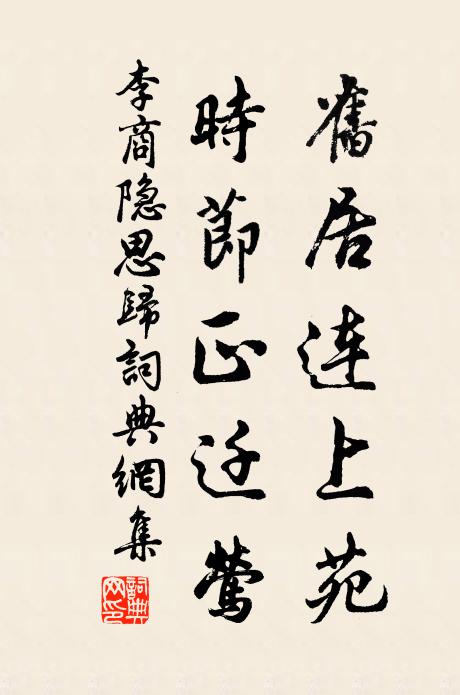 舊居連上苑
時節正迁鶯
李商隐思歸詞典網集
詞典网印